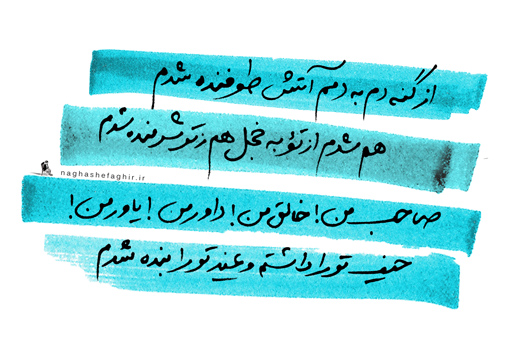 از گنه دم به دمم آتش طوفنده شدم
هم شدم از توبه خجل هم ز تو شرمنده شدم
naghashefaghir.ir
صاحب من! خالق من! داور من! یاور من!
حیف تو را داشتم و غیر تو را بنده شدم